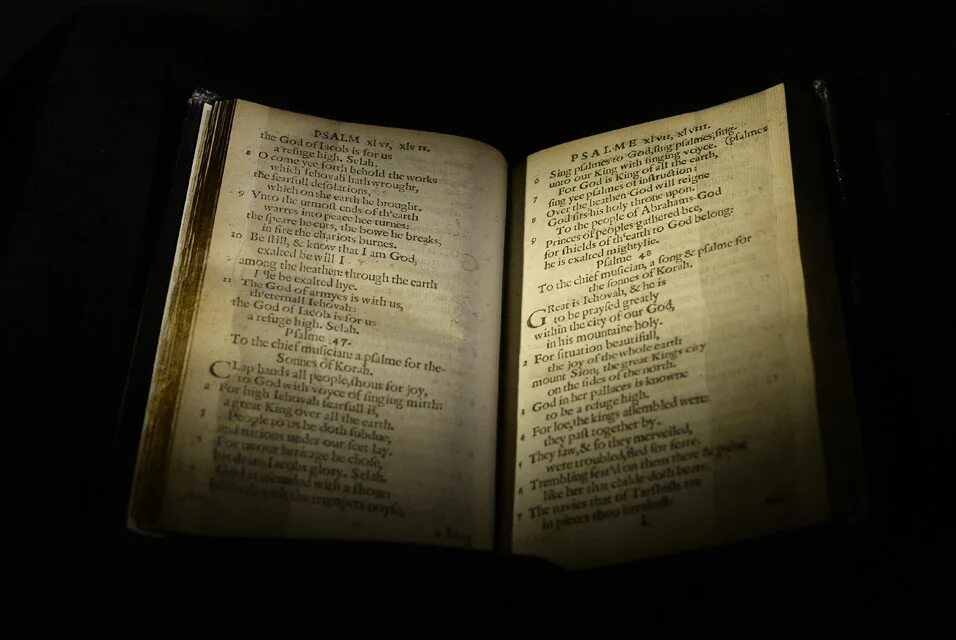 PSALM xlvi, xlvii.
the God of Iacob is for us
a refuge high. Selah.
8 O come yee forth behold the works
which Iehovah hath wrought,
the fearfull desolations,
which on the earth he brought.
9 Vnto the utmost ends of th'earth
warres into peace hee turnes:
the speare he cuts, the bowe he breaks,
in fire the chariots burnes.
10 Be still, & know that I am God,
exalted be will I
among the heathen: through the earth
I'le be exalted hye.
11 The God of armyes is with us,
th'eternall Iehovah:
the God of Iacob is for us
a refuge high. Selah.
Psalme 47.
To the chief musician: a psalme for the
Sonnes of Korah.
CLap hands all people, shout for joy,
to God with voyce of singing mirth:
2 For high Iehovah fearfull is,
a great King over all the earth.
3 People to us he doth subdue,
and nations under our feet lay.
4 For us our heritage he chose,
his deare Iacobs glory. Selah.
5 God is ascended with a shout:
Iehovah with the trumpets noyse.
6 Sing
PSALME xlvii, xlviii.
6 Sing psalmes to God, sing psalmes, sing
(psalmes
unto our King with singing voyce.
7 For God is King of all the earth,
sing yee psalmes of instruction:
8 Over the heathen God will reigne
God sits his holy throne upon.
9 To the people of Abrahams-God
Princes of peoples gathered bee,
for shields of th'earth to God belong:
he is exalted mightylie.
Psalme 48
To the chief musician, a song & psalme for
the sonnes of Korah.
GReat is Iehovah, & he is
to be praysed greatly
within the city of our God,
in his mountaine holy.
2 For situation beautifull,
the joy of the whole earth
mount Sion, the great Kings city
on the sides of the north.
3 God in her pallaces is knowne
to be a refuge high.
4 For loe, the kings assembled were:
they past together by.
5 They saw, & so they merveiled,
were troubled, fled for feare.
6 Trembling seiz'd on them there & paine
like her that childe doth beare.
7 The navies that of Tarshish are
in pieces thou breakest